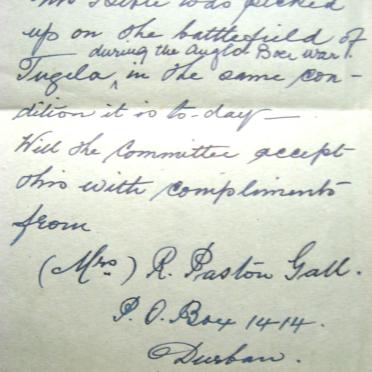 This Bible was picked
up on the battlefield of
during the Anglo Boer war.
Tugela ^ in the same con-
dition it is to-day—
Will the Committee accept
this with compliments
from
(Mrs) R. Paston Gall.
P.O. Box 1414.
Durban.